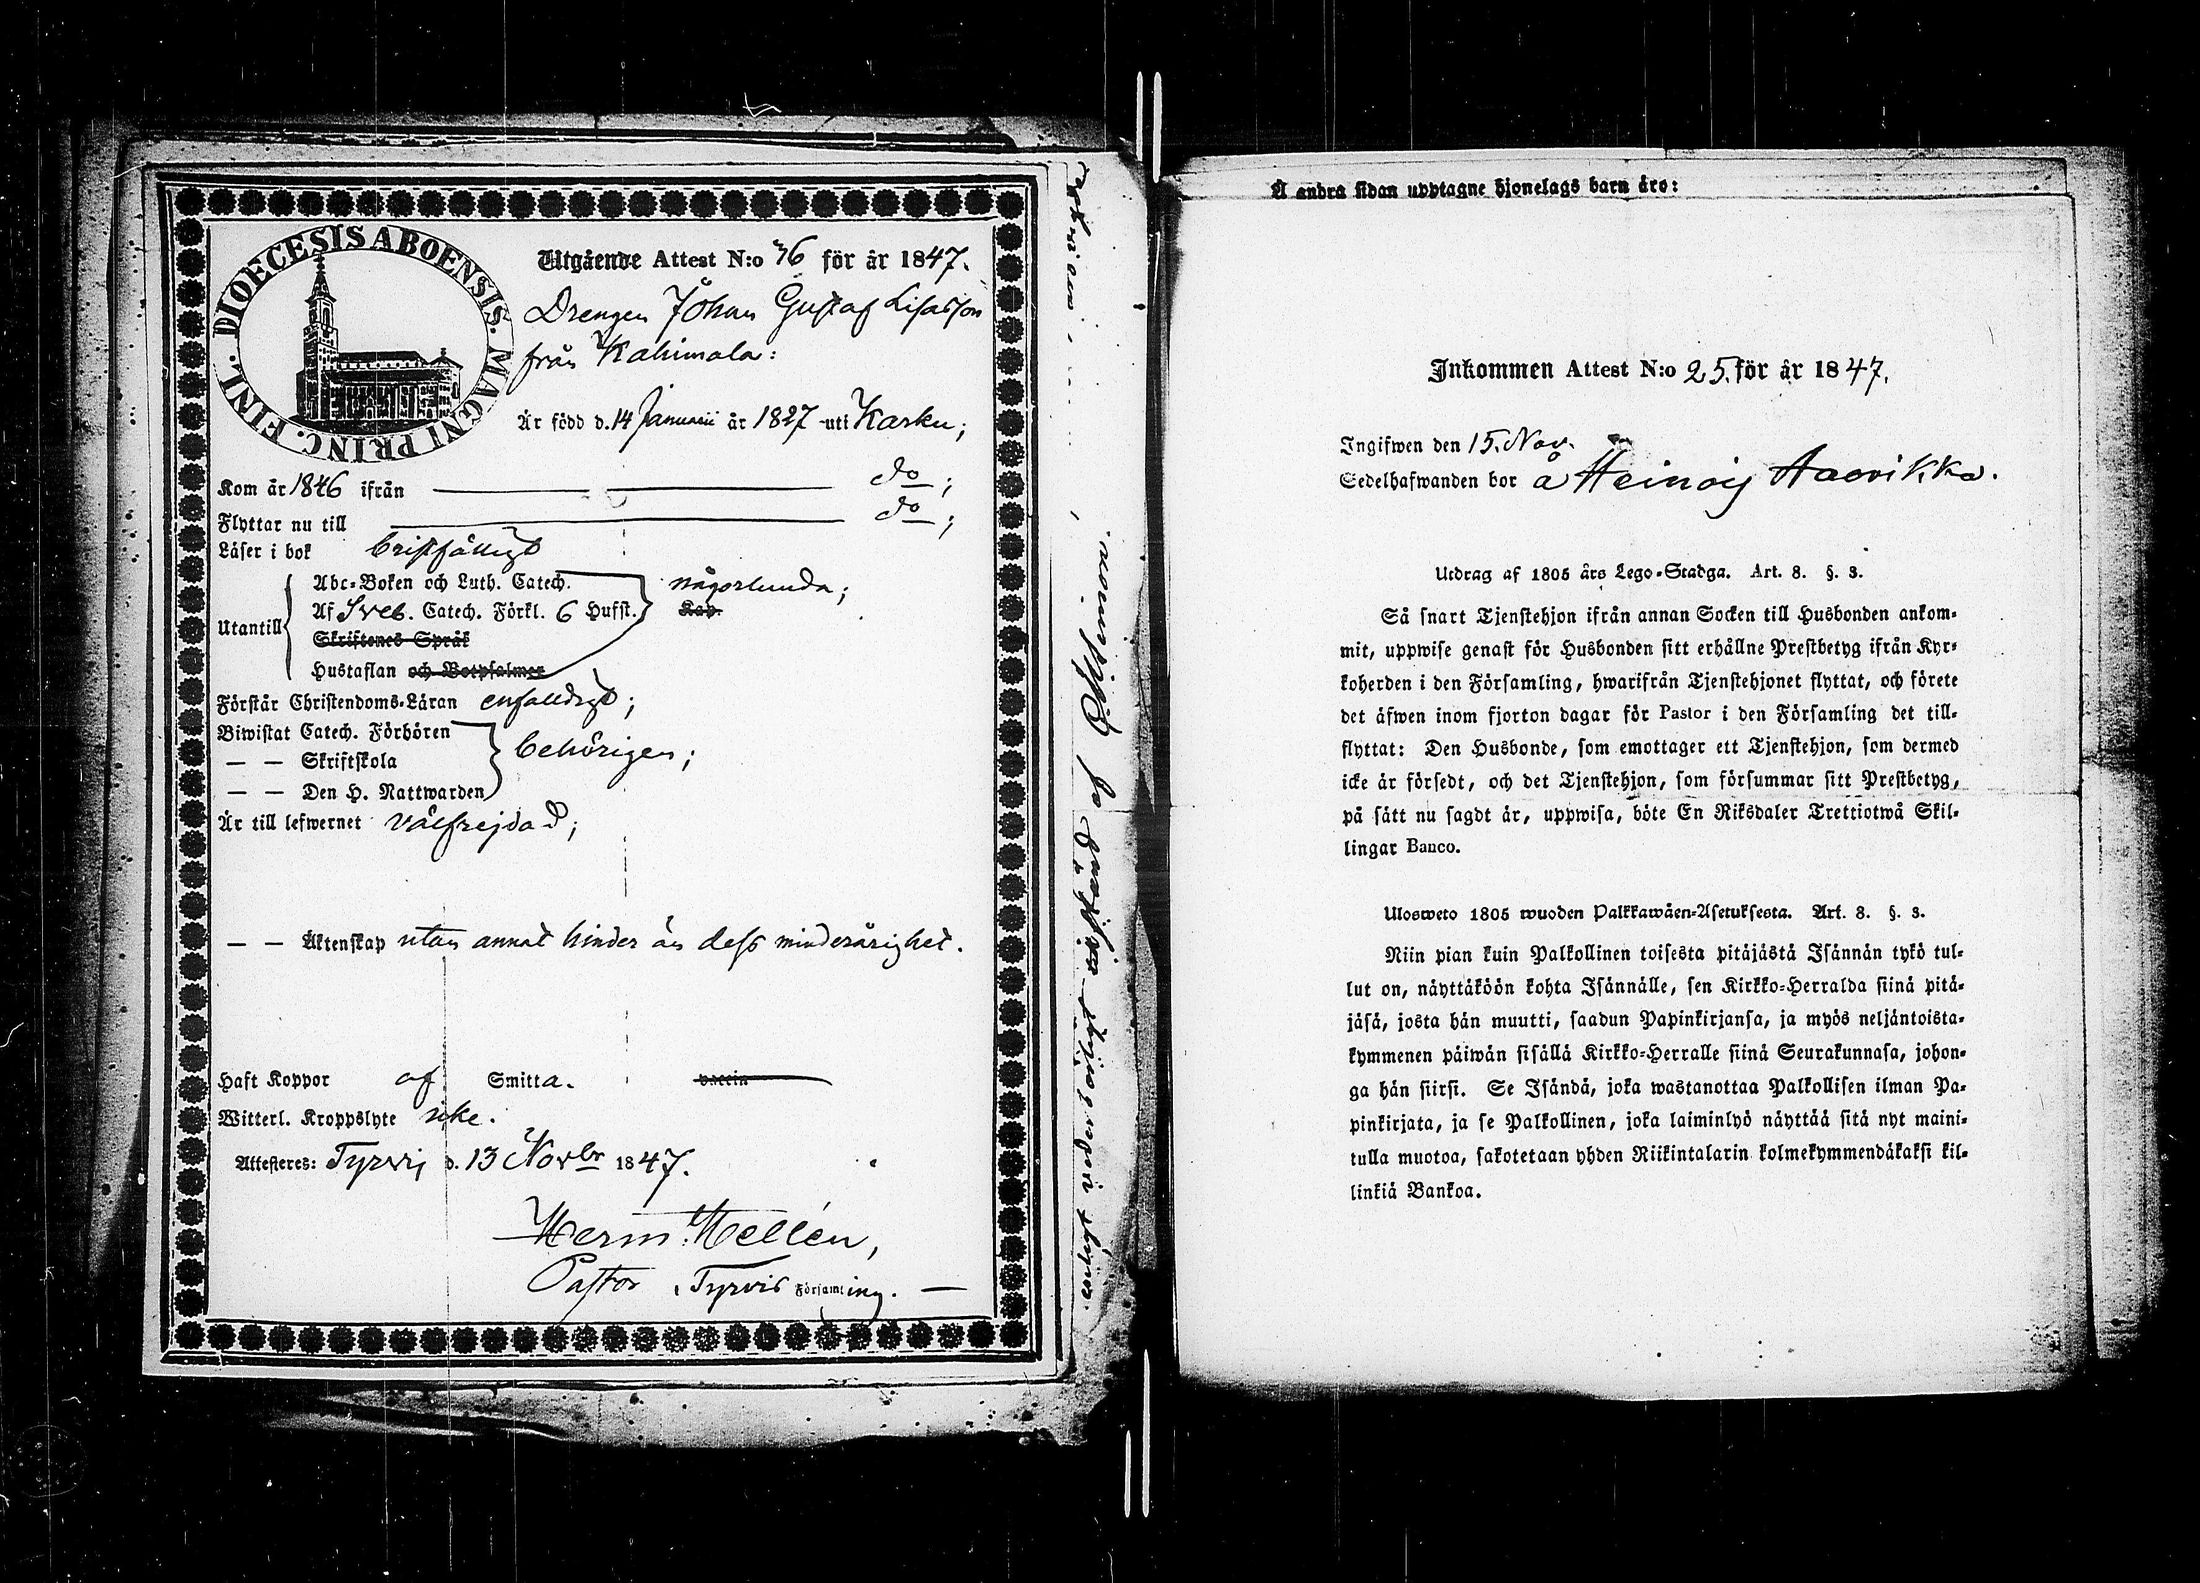 DIOECESIS ABOENSIS. MAGNI PRINC. FINL.
Utgående Attest N:o 76 för år 1847.
Drengen Johan Gustaf Lisasson
från Kahimala:
Är född d. 14 Januarii år 1827 uti Karku;
Kom år 1846 ifrån do;
Flyttar nu till do;
Läser i bok bristfälligt
Utantill
Abc-Boken och Luth. Catech.
Af Sveb. Catech. Förkl. 6 Hufst. Kap.
någorlunda;
Skriftenes Språk
Hustaflan och Botpsalmer
Förstår Christendoms-Läran enfalldigt;
Biwistat Catech. Förhören
— — Skriftskola
behörigen;
— — Den H. Nattwarden
Är till lefwernet välfrejdad;
— — Äktenskap utan annat hinder än dess minderårighet.
Haft Koppor af Smitta. vaccin
Witterl. Kroppslyte icke.
Attesteres: Tyrvis d. 13 Novbr 1847.
Herm. Hellén,
Pastor i Tyrvis Församling.
Å andra sidan upptagne hjonelags barn äro:
Inkommen Attest N:o 25. för år 1847.
Ingifwen den 15. Nov.
Sedelhafwanden bor å Heinoij Aaovikka.
Utdrag af 1805 års Lego-Stadga. Art. 8. §. 3.
Så snart Tjenstehjon ifrån annan Socken till Husbonden ankom-
mit, uppwise genast för Husbonden sitt erhållne Prestbetyg ifrån Kyr-
koherden i den Församling, hwarifrån Tjenstehjonet flyttat, och förete
det äfwen inom fjorton dagar för Pastor i den Församling det till-
flyttat: Den Husbonde, som emottager ett Tjenstehjon, som dermed
icke är försedt, och det Tjenstehjon, som försummar sitt Prestbetyg,
på sätt nu sagdt är, uppwisa, böte En Riksdaler Trettiotwå Skil-
lingar Banco.
Ulosweto 1805 wuoden Palkkawäen-Asetuksesta. Art. 8. §. 3.
Niin pian kuin Palkollinen toisesta pitäjästä Isännän tykö tul-
lut on, näyttäköön kohta Isännälle, sen Kirkko-Herralda siinä pitä-
jäsä, josta hän muutti, saadun Papinkirjansa, ja myös neljäntoista-
kymmenen päiwän sisällä Kirkko-Herralle siinä Seurakunnasa, johon-
ga hän siirsi. Se Isändä, joka wastanottaa Palkollisen ilman Pa-
pinkirjata, ja se Palkollinen, joka laiminlyö näyttää sitä nyt maini-
tulla muotoa, sakotetaan yhden Riikintalarin kolmekymmendäkaksi kil-
linkiä Bankoa.